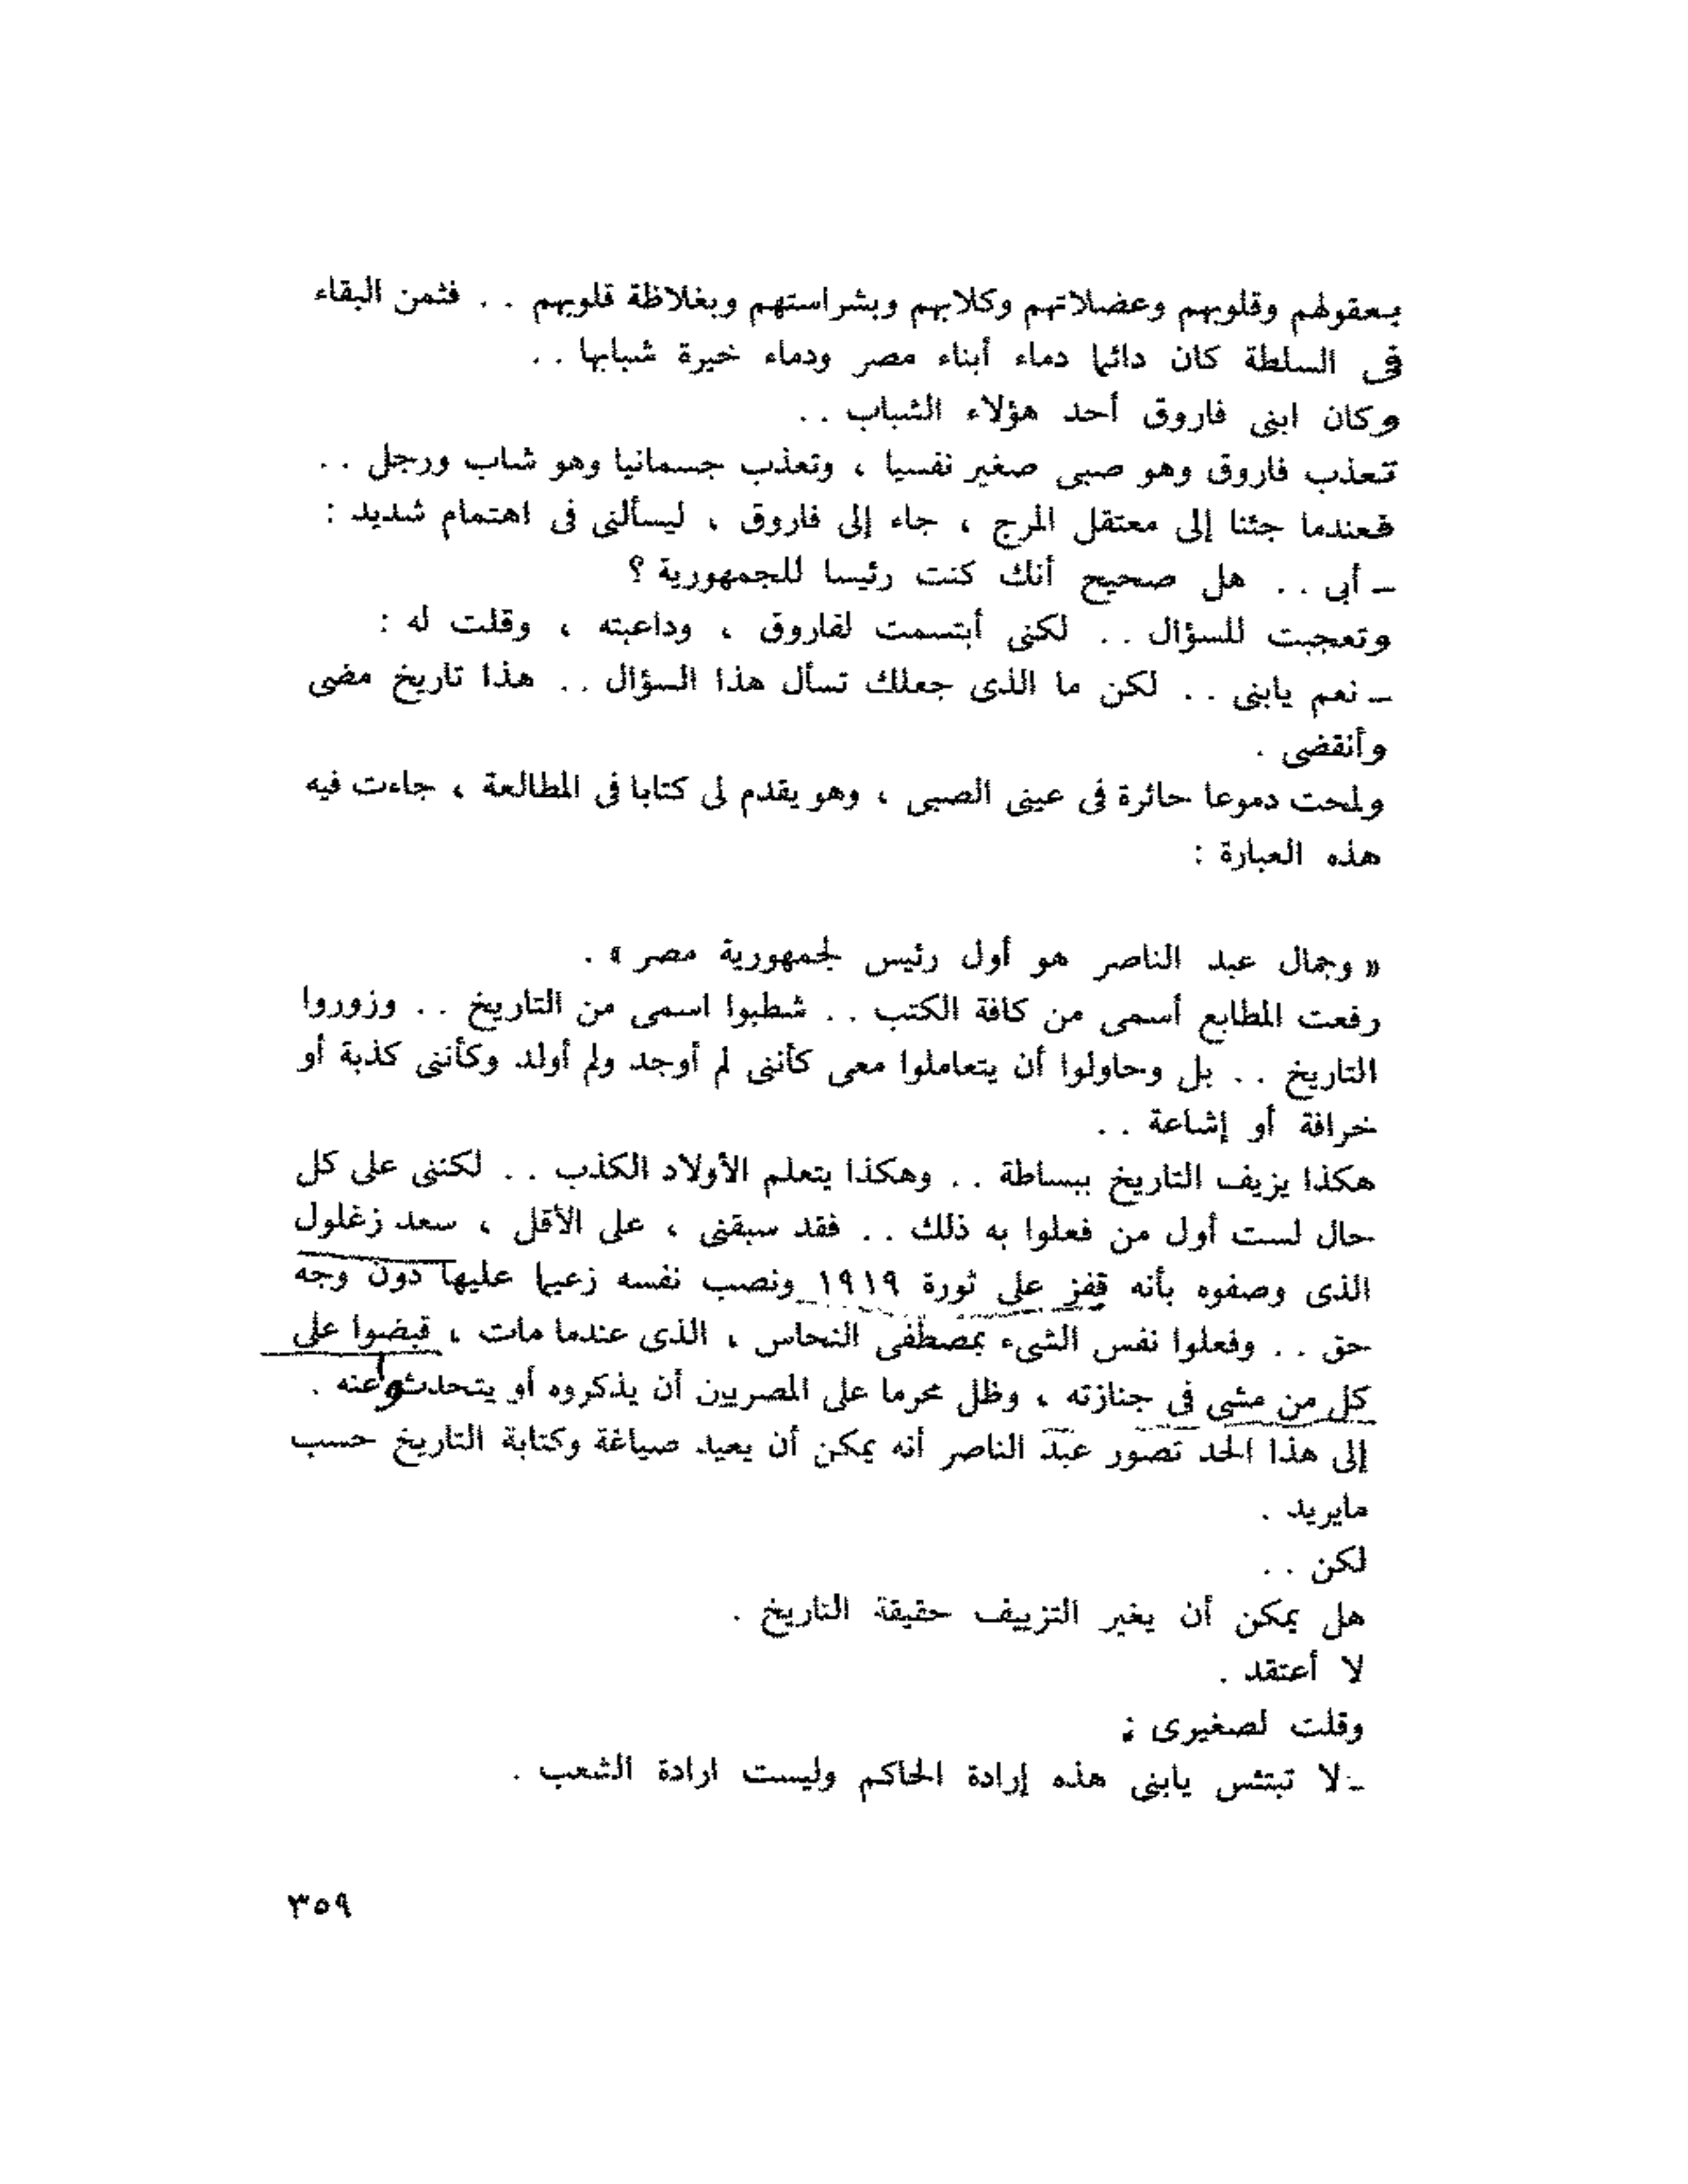 بعقولهم وقلوبهم وعضلاتهم وكلابهم وبشراستهم وبغلاظة قلوبهم . . فثمن البقاء
فى السلطة كان دائما دماء أبناء مصر ودماء خيرة شبابها . .
وكان ابنى فاروق أحد هؤلاء الشباب . .
تعذب فاروق وهو صبى صغير نفسيا ، وتعذب جسمانيا وهو شاب ورجل . .
فعندما جئنا إلى معتقل المرج ، جاء إلى فاروق ، ليسألنى فى اهتمام شديد :
ــ أبى . . هل صحيح أنك كنت رئيسا للجمهورية ؟
وتعجبت للسؤال . . لكنى أبتسمت لفاروق ، وداعبته ، وقلت له :
ــ نعم يابنى . . لكن ما الذى جعلك تسأل هذا السؤال . . هذا تاريخ مضى
وأنقضى .
ولمحت دموعا حائرة فى عينى الصبى ، وهو يقدم لى كتابا فى المطالعة ، جاءت فيه
هذه العبارة :
« وجمال عبد الناصر هو أول رئيس لجمهورية مصر » .
رفعت المطابع أسمى من كافة الكتب . . شطبوا اسمى من التاريخ . . وزوروا
التاريخ . . بل وحاولوا أن يتعاملوا معى كأننى لم أوجد ولم أولد وكأننى كذبة أو
خرافة أو إشاعة . .
هكذا يزيف التاريخ ببساطة . . وهكذا يتعلم الأولاد الكذب . . لكننى على كل
حال لست أول من فعلوا به ذلك . . فقد سبقنى ، على الأقل ، سعد زغلول
الذى وصفوه بأنه قفز على ثورة ١٩١٩ ونصب نفسه زعيما عليها دون وجه
حق . . وفعلوا نفس الشىء بمصطفى النحاس ، الذى عندما مات ، قبضوا على
كل من مشى فى جنازته ، وظل محرما على المصريين أن يذكروه أو يتحدثوا عنه .
إلى هذا الحد تصور عبد الناصر أنه يمكن أن يعيد صياغة وكتابة التاريخ حسب
مايريد .
لكن . .
هل يمكن أن يغير التزييف حقيقة التاريخ .
لا أعتقد .
وقلت لصغيرى :
ــ لا تبتئس يابنى هذه إرادة الحاكم وليست ارادة الشعب .
٣٥٩